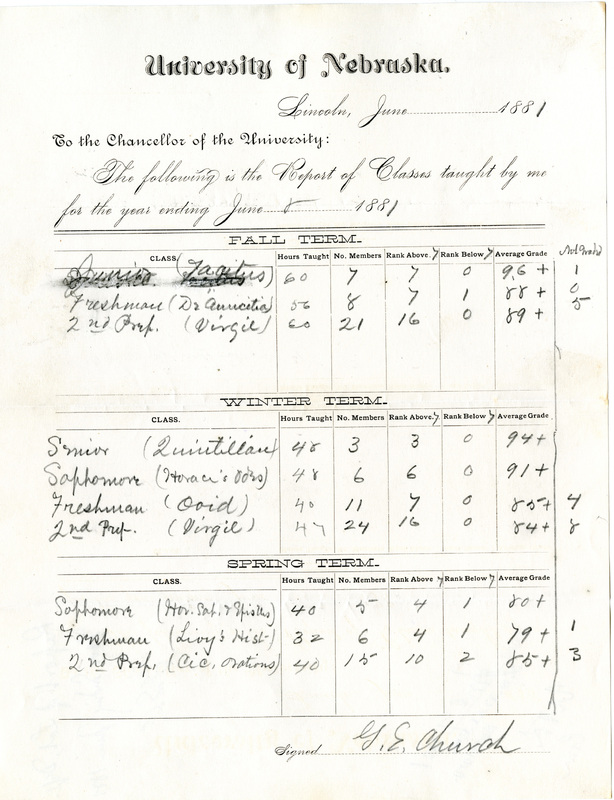 University of Nebraska.
Lincoln, June 1881
To the Chancellor of the University:
The following is the Report of Classes taught by me
for the year ending June 8 1881
FALL TERM.
CLASS. Hours Taught No. Members Rank Above 7 Rank Below 7 Average Grade Not Grad'd
Junior (Tacitus) 60 7 7 0 96+ 1
Freshman (De Amicitia) 56 8 7 1 88+ 0
2nd Prep. (Virgil) 60 21 16 0 89+ 5
WINTER TERM.
CLASS. Hours Taught No. Members Rank Above 7 Rank Below 7 Average Grade
Senior (Quintillan) 48 3 3 0 94+
Sophomore (Horace's Odes) 48 6 6 0 91+
Freshman (Ovid) 40 11 7 0 85+ 4
2nd Prep. (Virgil) 47 24 16 0 84+ 8
SPRING TERM.
CLASS. Hours Taught No. Members Rank Above 7 Rank Below 7 Average Grade
Sophomore (Hor. Sat. & Epistles) 40 5 4 1 80+
Freshman (Livy's Hist-) 32 6 4 1 79+ 1
2nd Prep. (Cic. Orations) 40 15 10 2 85+ 3
Signed G. E. Church